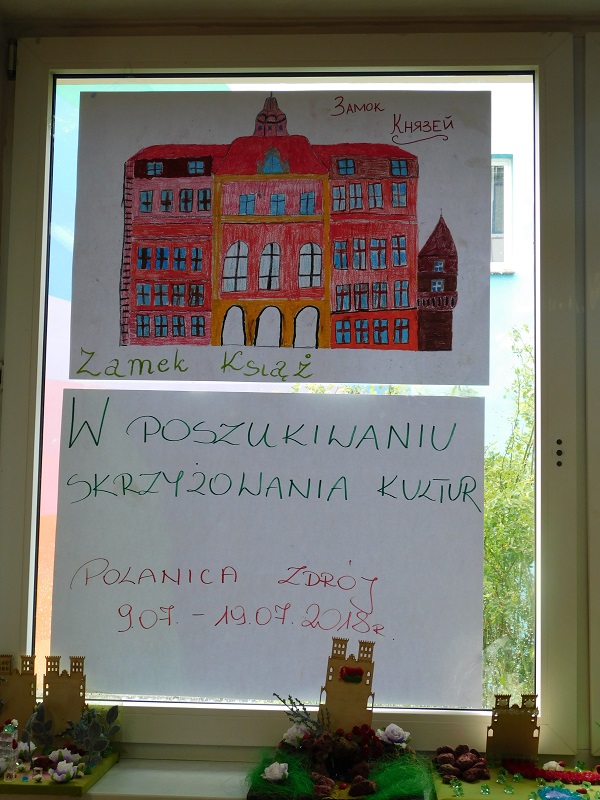 Замок
Князей
Zamek Książ
W POSZUKIWANIU
SKRZYŻOWANIA KULTUR
POLANICA ZDRÓJ
9.07. - 19.07.2018r.